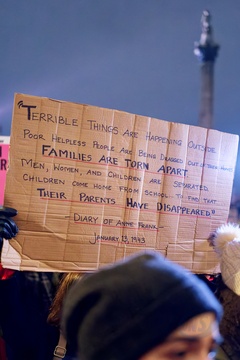 "Terrible things are happening outside
Poor helpless people are being dragged out of their homes
Families are torn apart
Men, women, and children are separated.
Children come home from school to find that
their parents have disappeared"
- Diary of Anne Frank -
January 13, 1943